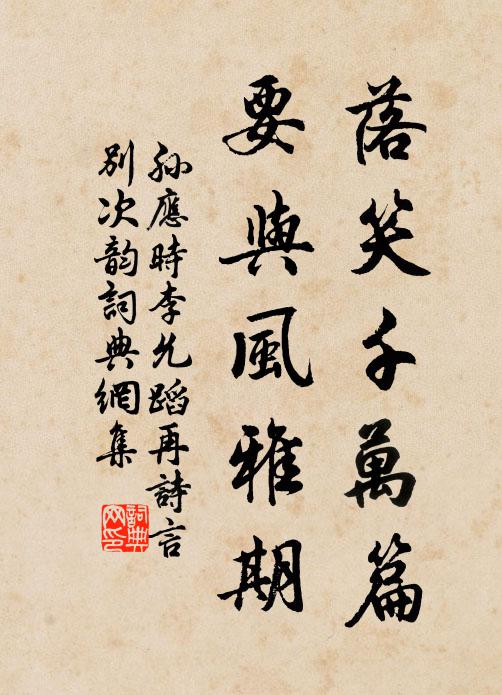 落笑千萬篇
要與風雅期
孫應時李允蹈再詩言
別次韵詞典網集
詞典网印